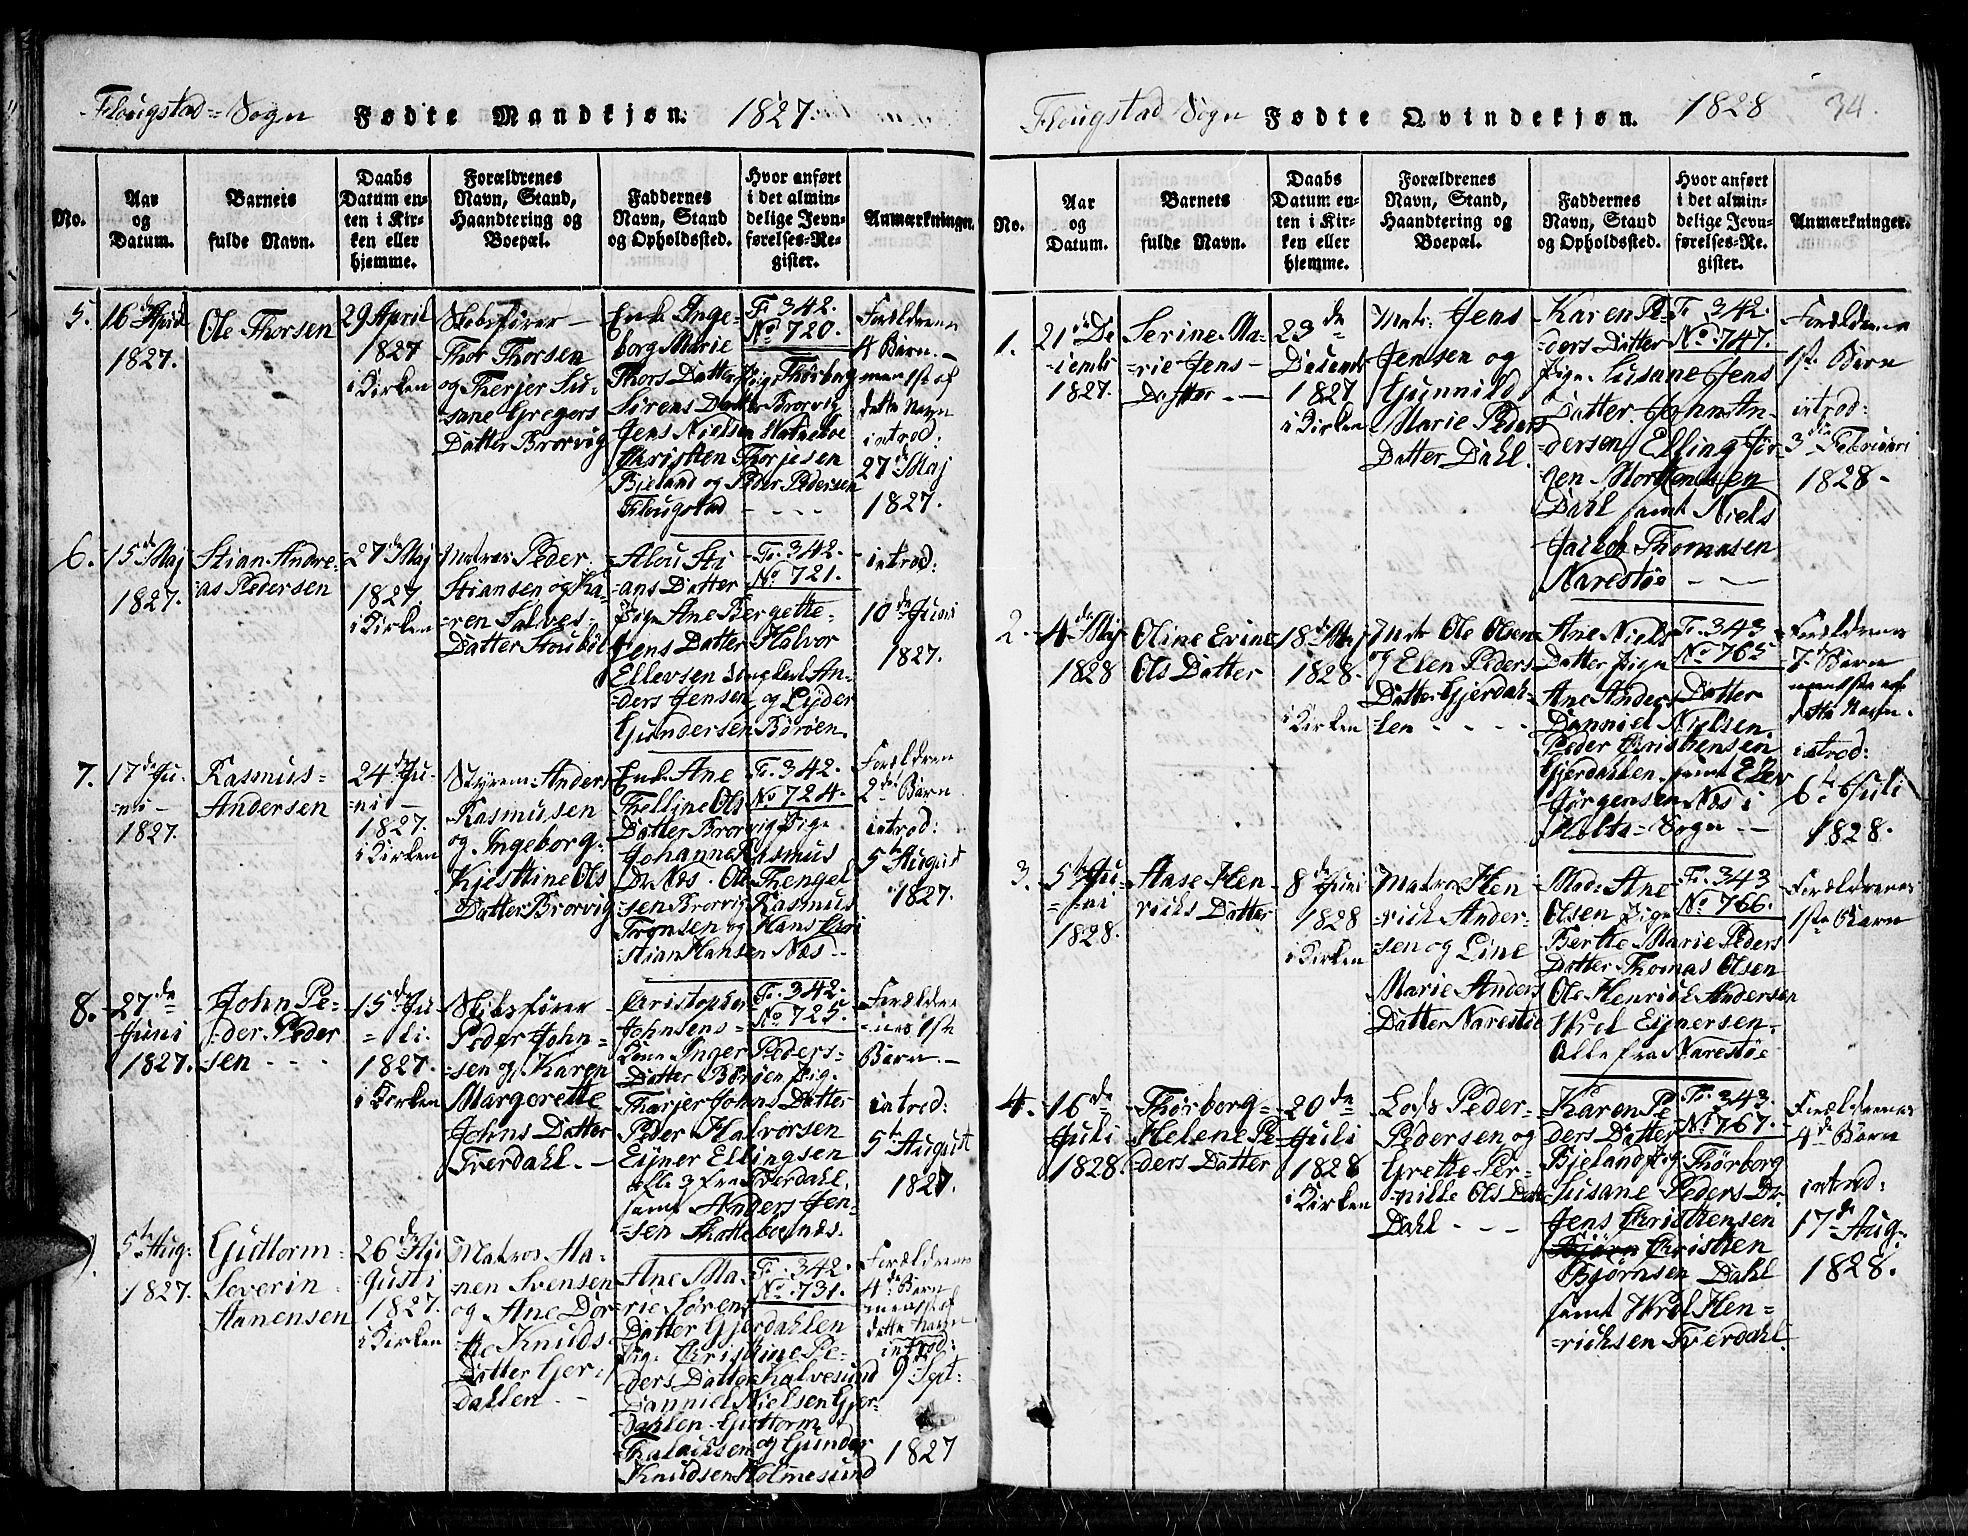 Flougstad=Sogn Fødte Mandkjøn. 1827.
No.
Aar og Datum.
Barnets fulde Navn.
Daabs Datum enten i Kirken eller hjemme.
Forældrenes Navn, Stand, Haandtering og Boepæl.
Faddernes Navn, Stand og Opholdssted.
Hvor anført i det almindelige Jevnførelses-Register.
Anmærkninger.
5.
16de April
1827.
Ole Thorsen
29 April
1827
i Kirken
Thor Thorsen
og Therjer Su-
sane Gregers
Datter Brorvig
Enke Inge-
borg Marie
Thors Datter Pige Thørborg
Sørens Datter Brorvig
Jens Nielsen
Christen Thorjesen
Bjeland og Peder Pedersen
Flougstad - - - -
F. 342.
No. 720.
Forældrenes
4 Barn. -
men 1ste af
dette Navn
introd:
27de Maj
1827.
6.
15de Maj
1827.
Stian Andre-
as Pedersen
27de Maj
1827.
i Kirken
Matros Peder
Stiansen og Ka-
ren Salves-
Datter
Sti
ans Datter
Pige Ane Bergette
Jens Datter Halvor
Ellevsen An-
ders Jensen og Lyder
Gundersen Børøen.
Fr. 342.
No. 721.
introd:
10de Juni
1827.
7.
17de Ju-
ni -
1827.
Rasmus
Andersen
24de Ju-
ni -
1827.
i Kirken
Styrm: Anders
Rasmusen
og Ingeborg
Kjesttine Ols
Datter Brorvig
Enke Ane
Thelline Ols
Datter Brorvig Pige
Johanne Rasmus
Dr. Næs. Ole Thengel
sen Brorvig Rasmus
Tromsen og Hans Chri
stian Hansen Næs -
Fr. 342.
No. 724.
Forældrenes
2det Barn
introd:
5te August
1827.
8.
27de
Juni
1827.
John Pe-
der Peder
sen - - -
15de Ju
li.
1827.
i Kirken
Skibsfører
Peder John
sen og Karen
Margorette
Johns Datter
Tverdahl. -
Christopher
Johnsens
Kone Inger Peders
Datter Børøen Pig.
Tharjer Johns Datter
Peder Halvorsen
Eijner Ellingsen
alle 3 fra Tverdahl.
samt Anders Jen-
sen
Fr. 342.
No. 725.
Forældre
nes 1ste
Barn -
introd:
5te August
1827.
9.
5te Aug:
1827.
Guttorm
Severin
Aanensen
26de Au
gusti
1827.
i Kirken
Matros Aa-
nen Svensen
og Ane Dor-
the Knuds
Datter Gjer
dahlen -
Ane Ma-
rie Sørens
Datter Gjerdahlen
Pig: Christine Pe-
ders Datter Kalvesund
Danniel Nielsen Gjer-
dahlen. Guttorm
og Gunder
Knudsen Holmesund
Fr. 342.
No. 731.
Forældrenes
4de Barn
men 1ste af
dette Navn
introd:
9de Sept:
1827
Flougstad Sogn Fødte Qvindekjøn. 1828 34.
No.
Aar og Datum.
Barnets fulde Navn.
Daabs Datum enten i Kirken eller hjemme.
Forældrenes Navn, Stand, Haandtering og Boepæl.
Faddernes Navn, Stand og Opholdsted.
Hvor anført i det almindelige Jevnførelses-Re. gister.
Anmærkninger.
1.
21de De
cembr
1827.
Serine Ma-
rie Jens
Datter - -
23de
Decembr
1827
i Kirken
Matr: Jens
Jensen og
Gunnild
Marie Peders
Datter Dahl.
Karen Pe-
ders Datter
Pige. Susane Jens
Datter. John An-
dersen, Elling Jør-
gen Mortensen
Dahl samt Niels
Jacob Thomasen
Narestøe - -
Fr. 342.
No. 747.
Forældrenes
1ste Barn
introd:
3die Februari
1828.
2.
4de Maj
1828
Oline Evine
Ols Datter
18de Maj
1828.
i Kirken
Matr Ole Olsen
og Elen Peders
Datter Gjerdah-
len - - - -
Ane Niels
Datter Pige
Ane Anders Datter
Danniel Nielsen.
Peder Christensen
Gjerdahlen. samt Elev
Jørgensen Næs i
Holts=Sogn -
Fr. 343
No. 765
Forældrenes
7de Barn
men 1ste af
dette Navn.
introd:
6te Juli
1828.
3.
5te Ju-
ni
1828.
Aase Hen
richs Datter
8de Juni
1828
i Kirken
Matros Hen
rich Ander-
sen og Line
Marie Anders
Datter Narestøe
Mad: Ane
Olsen Pige
Berthe Marie Peders
Datter. Thomas Olsen
Ole Henrich Andersen
Wrel Eijnersen.
Alle fra Narestøe
Fr. 343
No. 766.
Forældrenes
1ste Barn
4.
16de
Juli
1828.
Thørborg
Helene Pe-
ders Datter
20de
Juli
1828
i Kirken
Lods Peder
Pedersen og
Grette Per-
nille Ols Datr
Dahl - - -
Karen Pe
ders Datter
Bjeland Pig: Thørborg
Susane Peders Dr.
Jens Christensen
Bjørn Christen
Bjørnsen Dahl
samt Wrel Hen-
richsen Tverdahl.
Fr. 343.
No. 767.
Forældrenes
4de Barn
introd:
17de Aug.
1828.